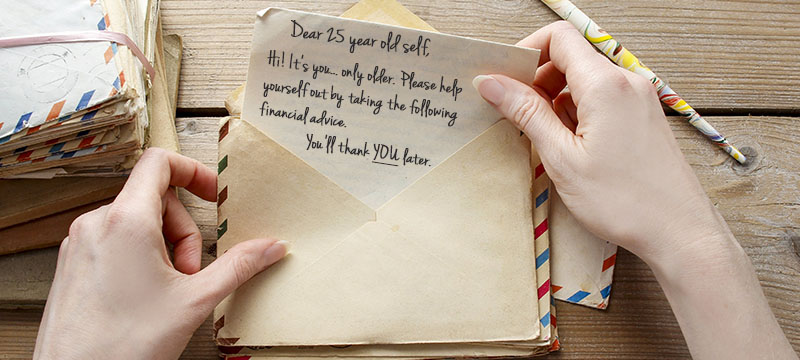 Dear 25 year old self,
Hi! It's you... only older. Please help
yourself out by taking the following
financial advice.
You'll thank YOU later.